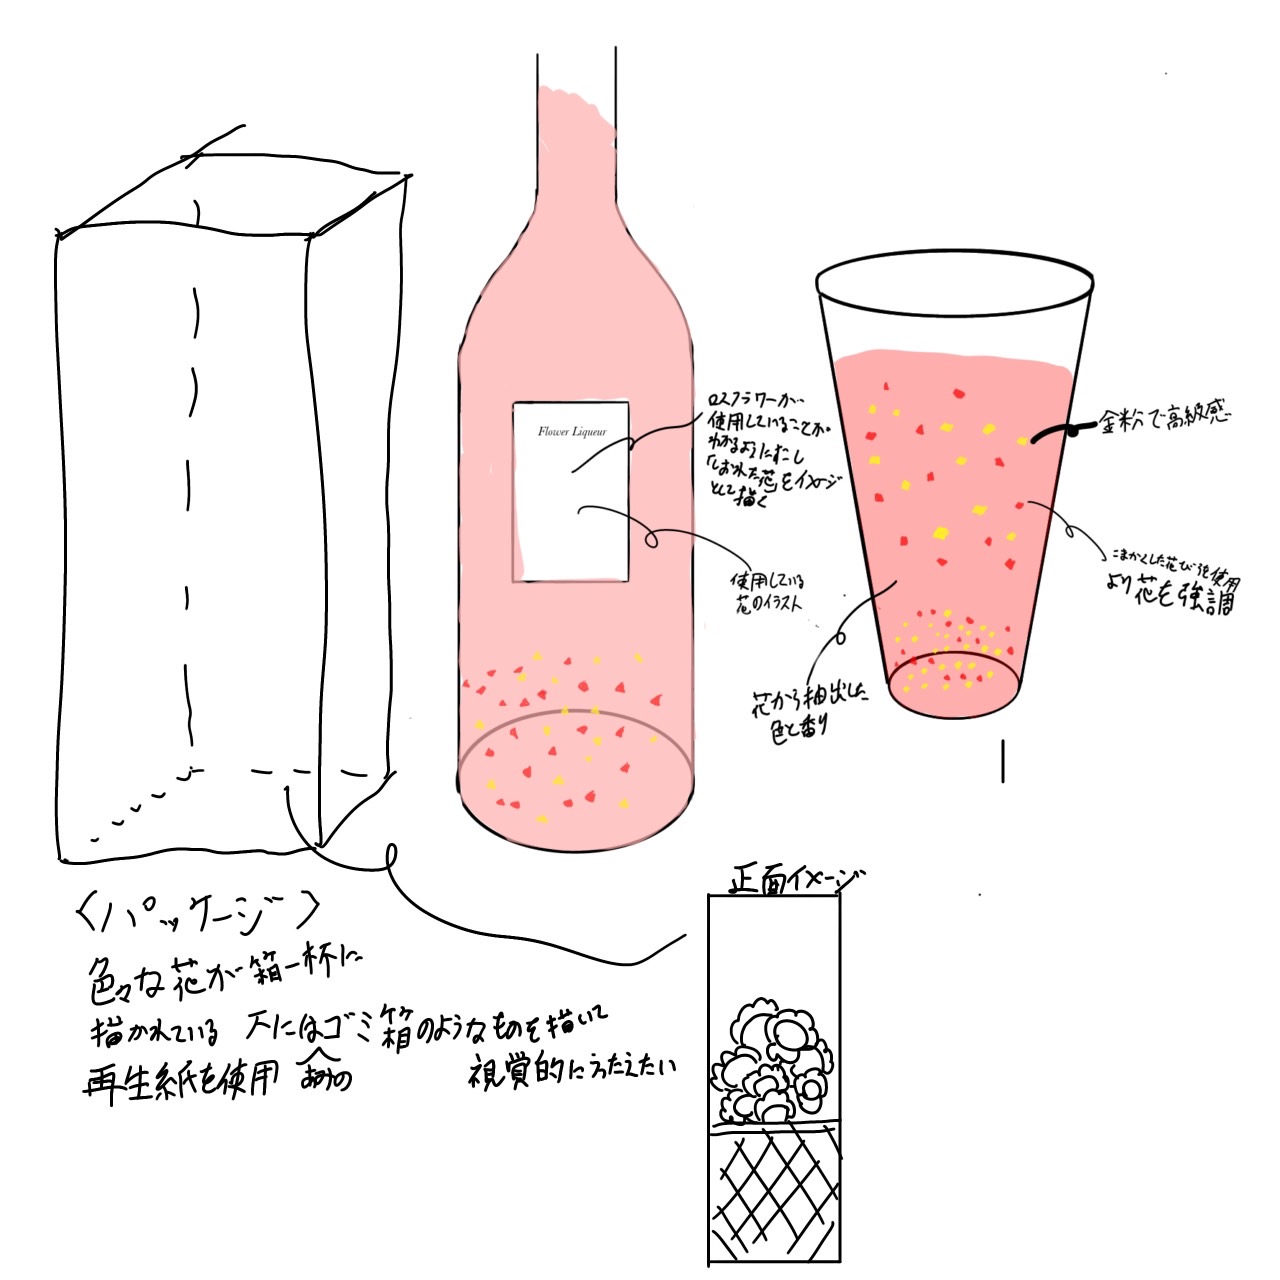 Flower Liqueur
ロスフラワーが
使用していることが
わかるようにすこし
「しおれた花」をイメージ
として描く
使用している
花のイラスト
金粉で高級感
こまかくした花びらを使用
より花を強調
花から抽出した
色と香り
〈パッケージ〉
色々な花が箱一杯に
描かれている 下にはゴミ箱のようなものを描いて
再生紙を使用 あみの 視覚的にうったえたい
正面イメージ